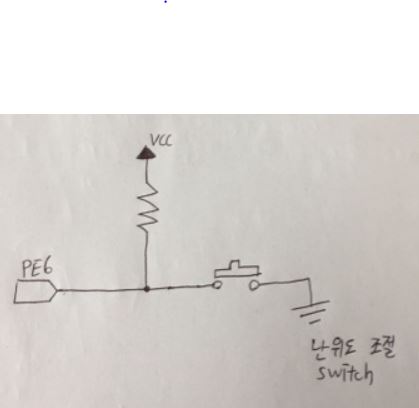 VCC
PE6
난위도 조절
switch